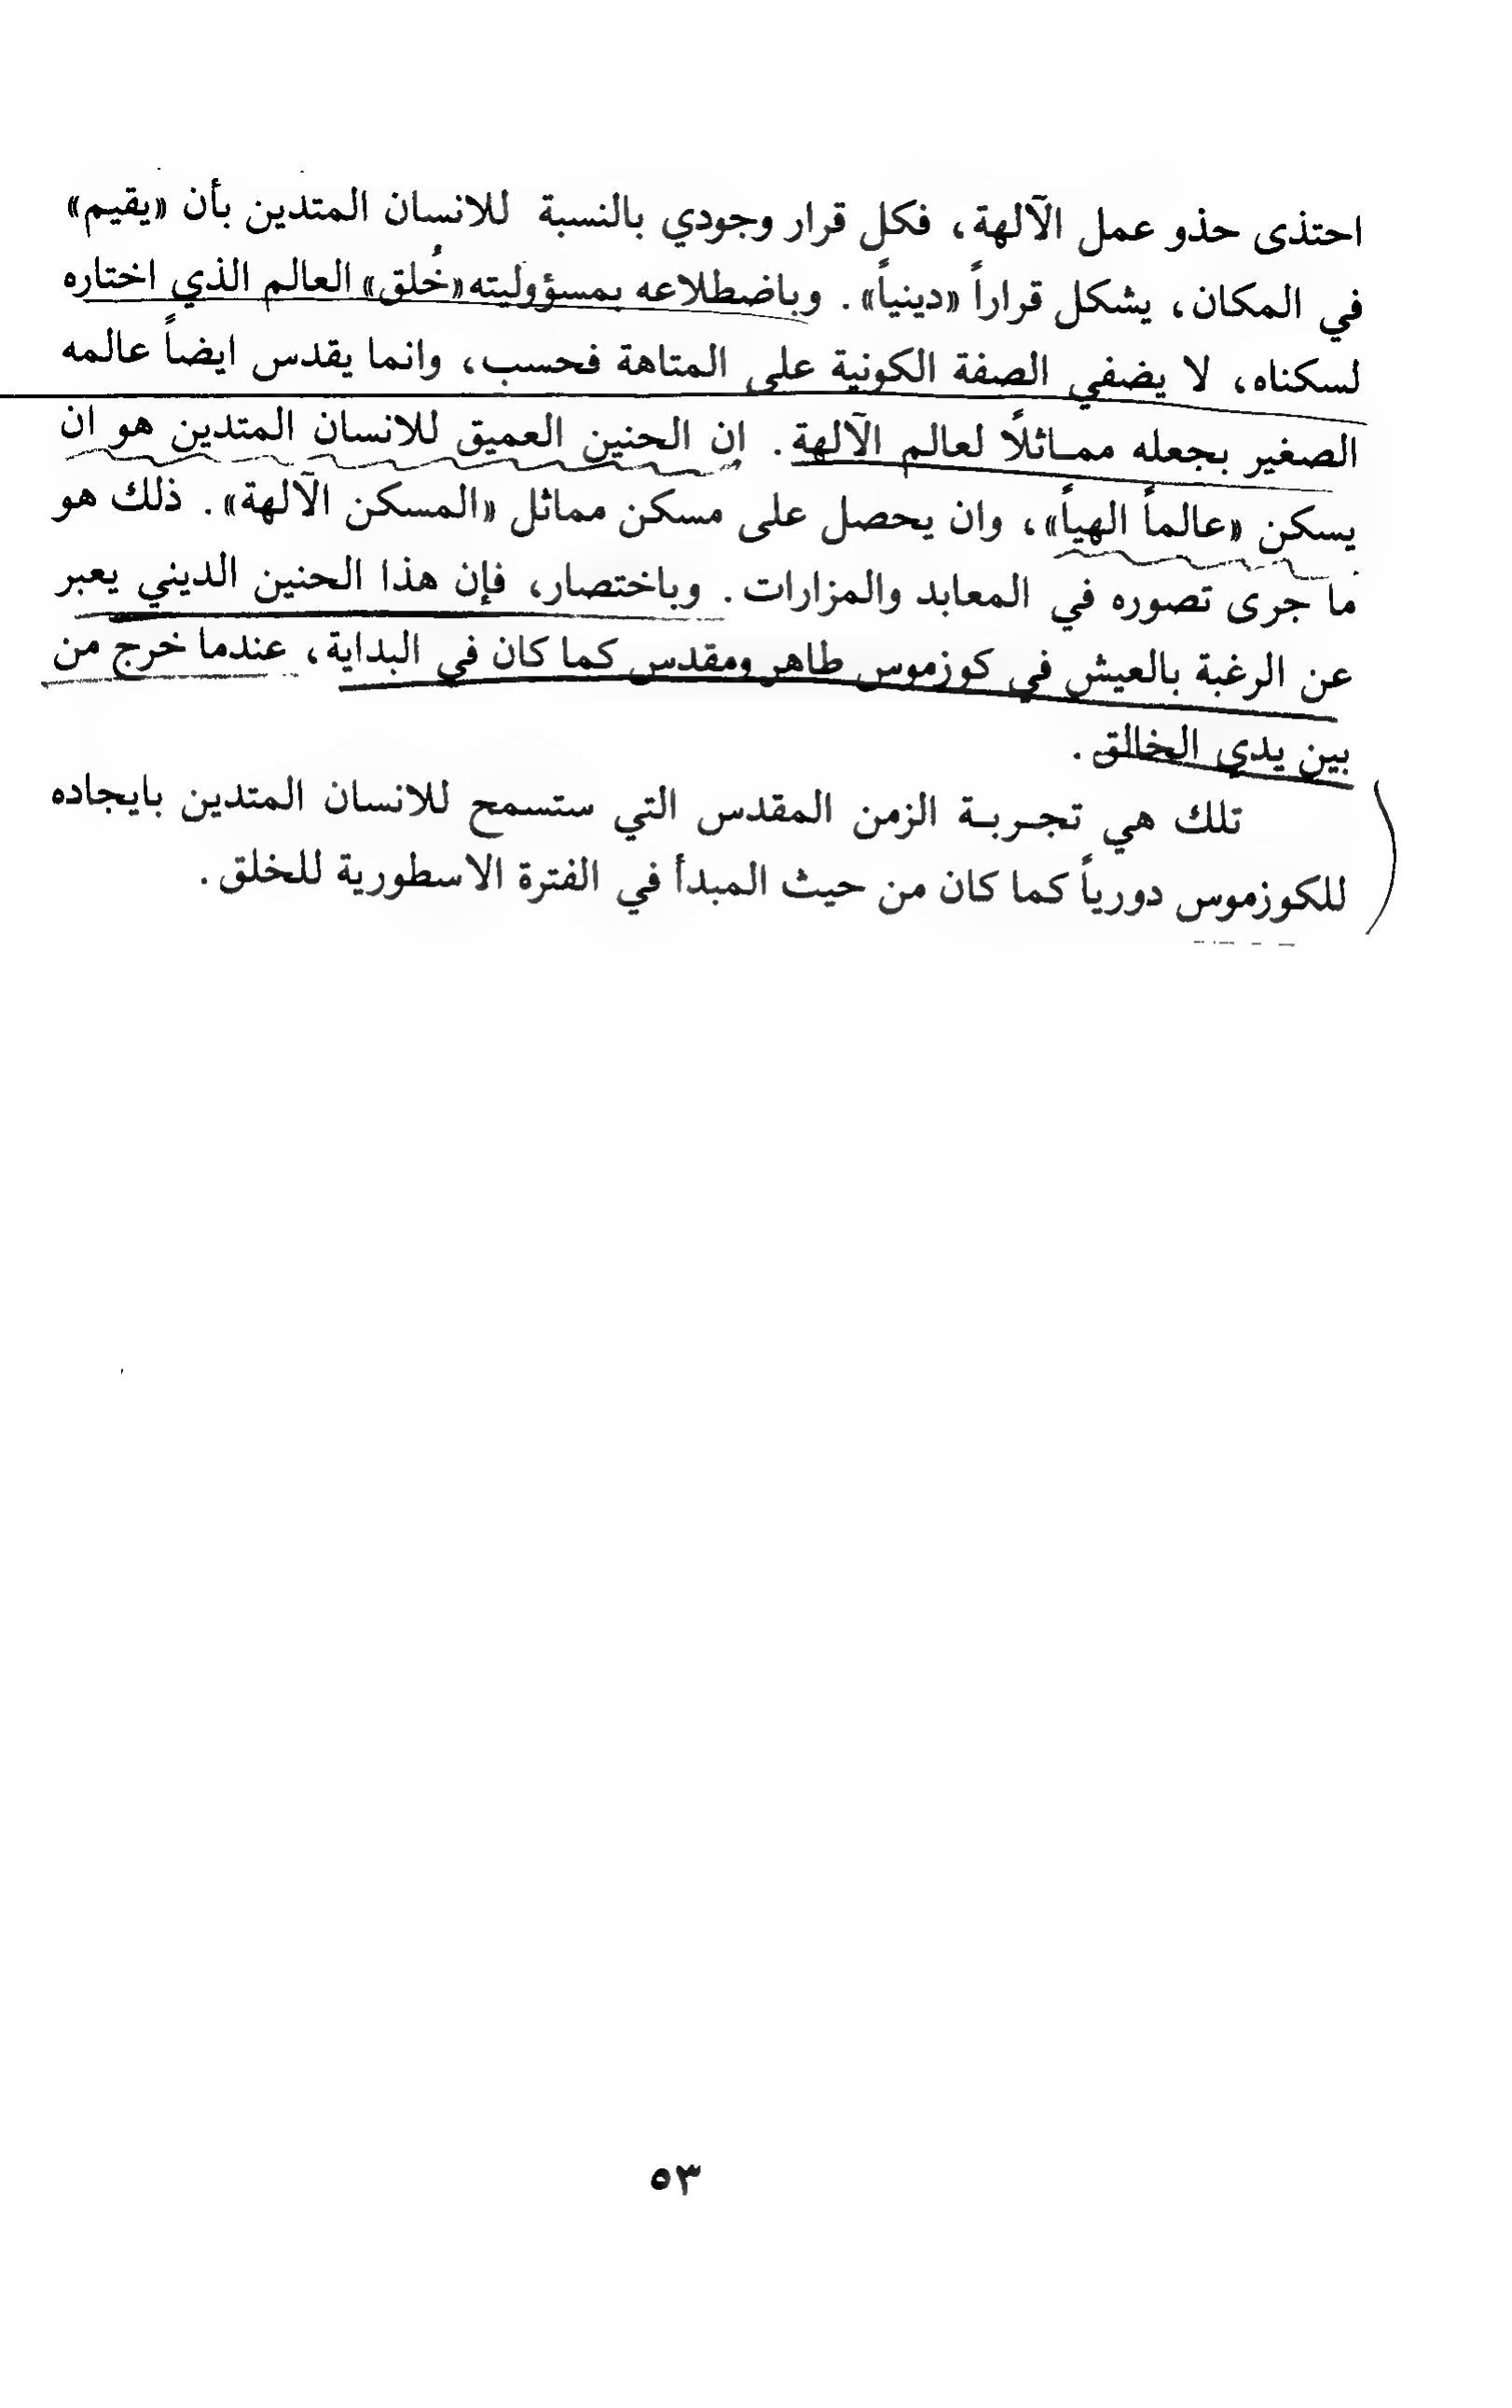 احتذى حذو عمل الآلهة، فكل قرار وجودي بالنسبة للانسان المتدين بأن «يقيم»
في المكان، يشكل قراراً «دينياً». وباضطلاعه بمسؤوليته «خُلق» العالم الذي اختاره
لسكناه، لا يضفي الصفة الكونية على المتاهة فحسب، وانما يقدس ايضاً عالمه
الصغير بجعله ممـاثلًا لعالم الآلهة. ان الحنين العميق للانسان المتدين هو ان
يسكن «عالماً الهياً»، وان يحصل على مسكن مماثل «المسكن الآلهة». ذلك هو
ما جرى تصوره في المعابد والمزارات. وباختصار، فإن هذا الحنين الديني يعبر
عن الرغبة بالعيش في كوزموس طاهر ومقدس كما كان في البداية، عندما خرج من
بين يدي الخالق.
تلك هي تجـربـة الزمن المقدس التي ستسمح للانسان المتدين بايجاده
للكوزموس دورياً كما كان من حيث المبدأ في الفترة الاسطورية للخلق.
٥٣